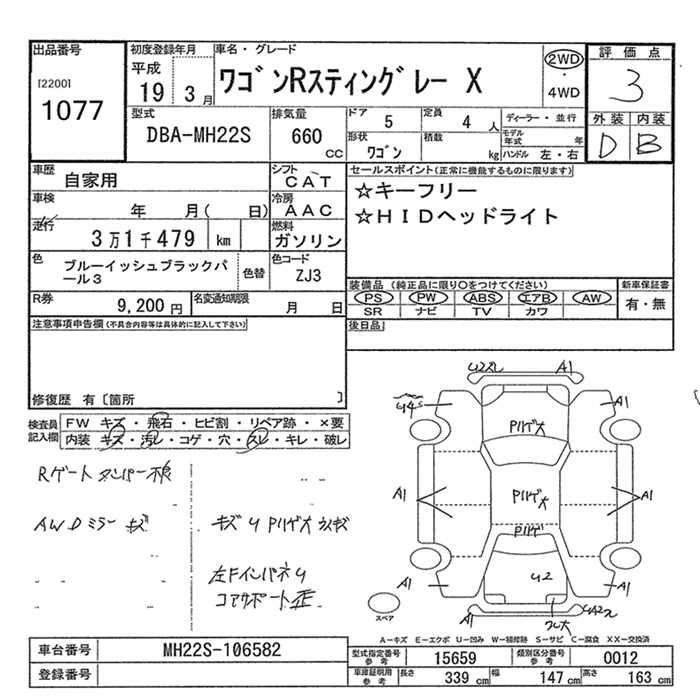 出品番号
[2200]
1077
初度登録年月
平成
19 3月
車名・グレード
ワゴンRスティングレー X
2WD
・
4WD
評価点
3
外装 内装
D B
型式
DBA-MH22S
排気量
660 CC
ドア 5
定員 4 人
形状
ワゴン
積載 kg
ディーラー・並行
モデル年式 年
ハンドル 左・右
車歴
自家用
シフト
CAT
車検
年 月( 日)
冷房
AAC
走行
3万1千479 km
燃料
ガソリン
色
ブルーイッシュブラックパール3
色替
色コード
ZJ3
R券
9,200 円
名変通知期限
月 日
セールスポイント(正常に機能するものに限ります)
☆キーフリー
☆HIDヘッドライト
装備品 (純正品に限り○をつけてください)
PS PW ABS エアB AW
SR ナビ TV カワ
新車保証書
有・無
後日品
注意事項申告欄(不具合内容等は具体的に記入して下さい)
修復歴 有〔箇所 〕
検査員記入欄
FW キズ・飛石・ヒビ割・リペア跡・×要
内装 キズ・汚レ・コゲ・穴・スレ・キレ・破レ
Rゲート ダンパー不良
AWDミラー キズ
キズ U P川ゲ大
左FインパネU
コアサポート歪
A1
A1
P川ゲ大
A1
P川ゲ大
A1
P川ゲ
A1
U2
A1
A1
スペア
A-キズ E-エクボ U-凹み W-補修跡 S-サビ C-腐食 XX-交換済
車台番号
MH22S-106582
登録番号
型式指定番号
参考
15659
類別区分番号
参考
0012
車庫証明用
参考
長さ 339 cm
幅 147 cm
高さ 163 cm